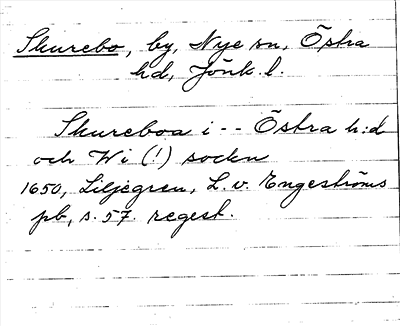 Skurebo, by, Nye sn, Östra
hd, Jönk. l.
Skureboa i -- Östra h:d
och Wi (!) sockn
1650, Liljegren, L. v. Engeströms
pb, s. 57. regest.